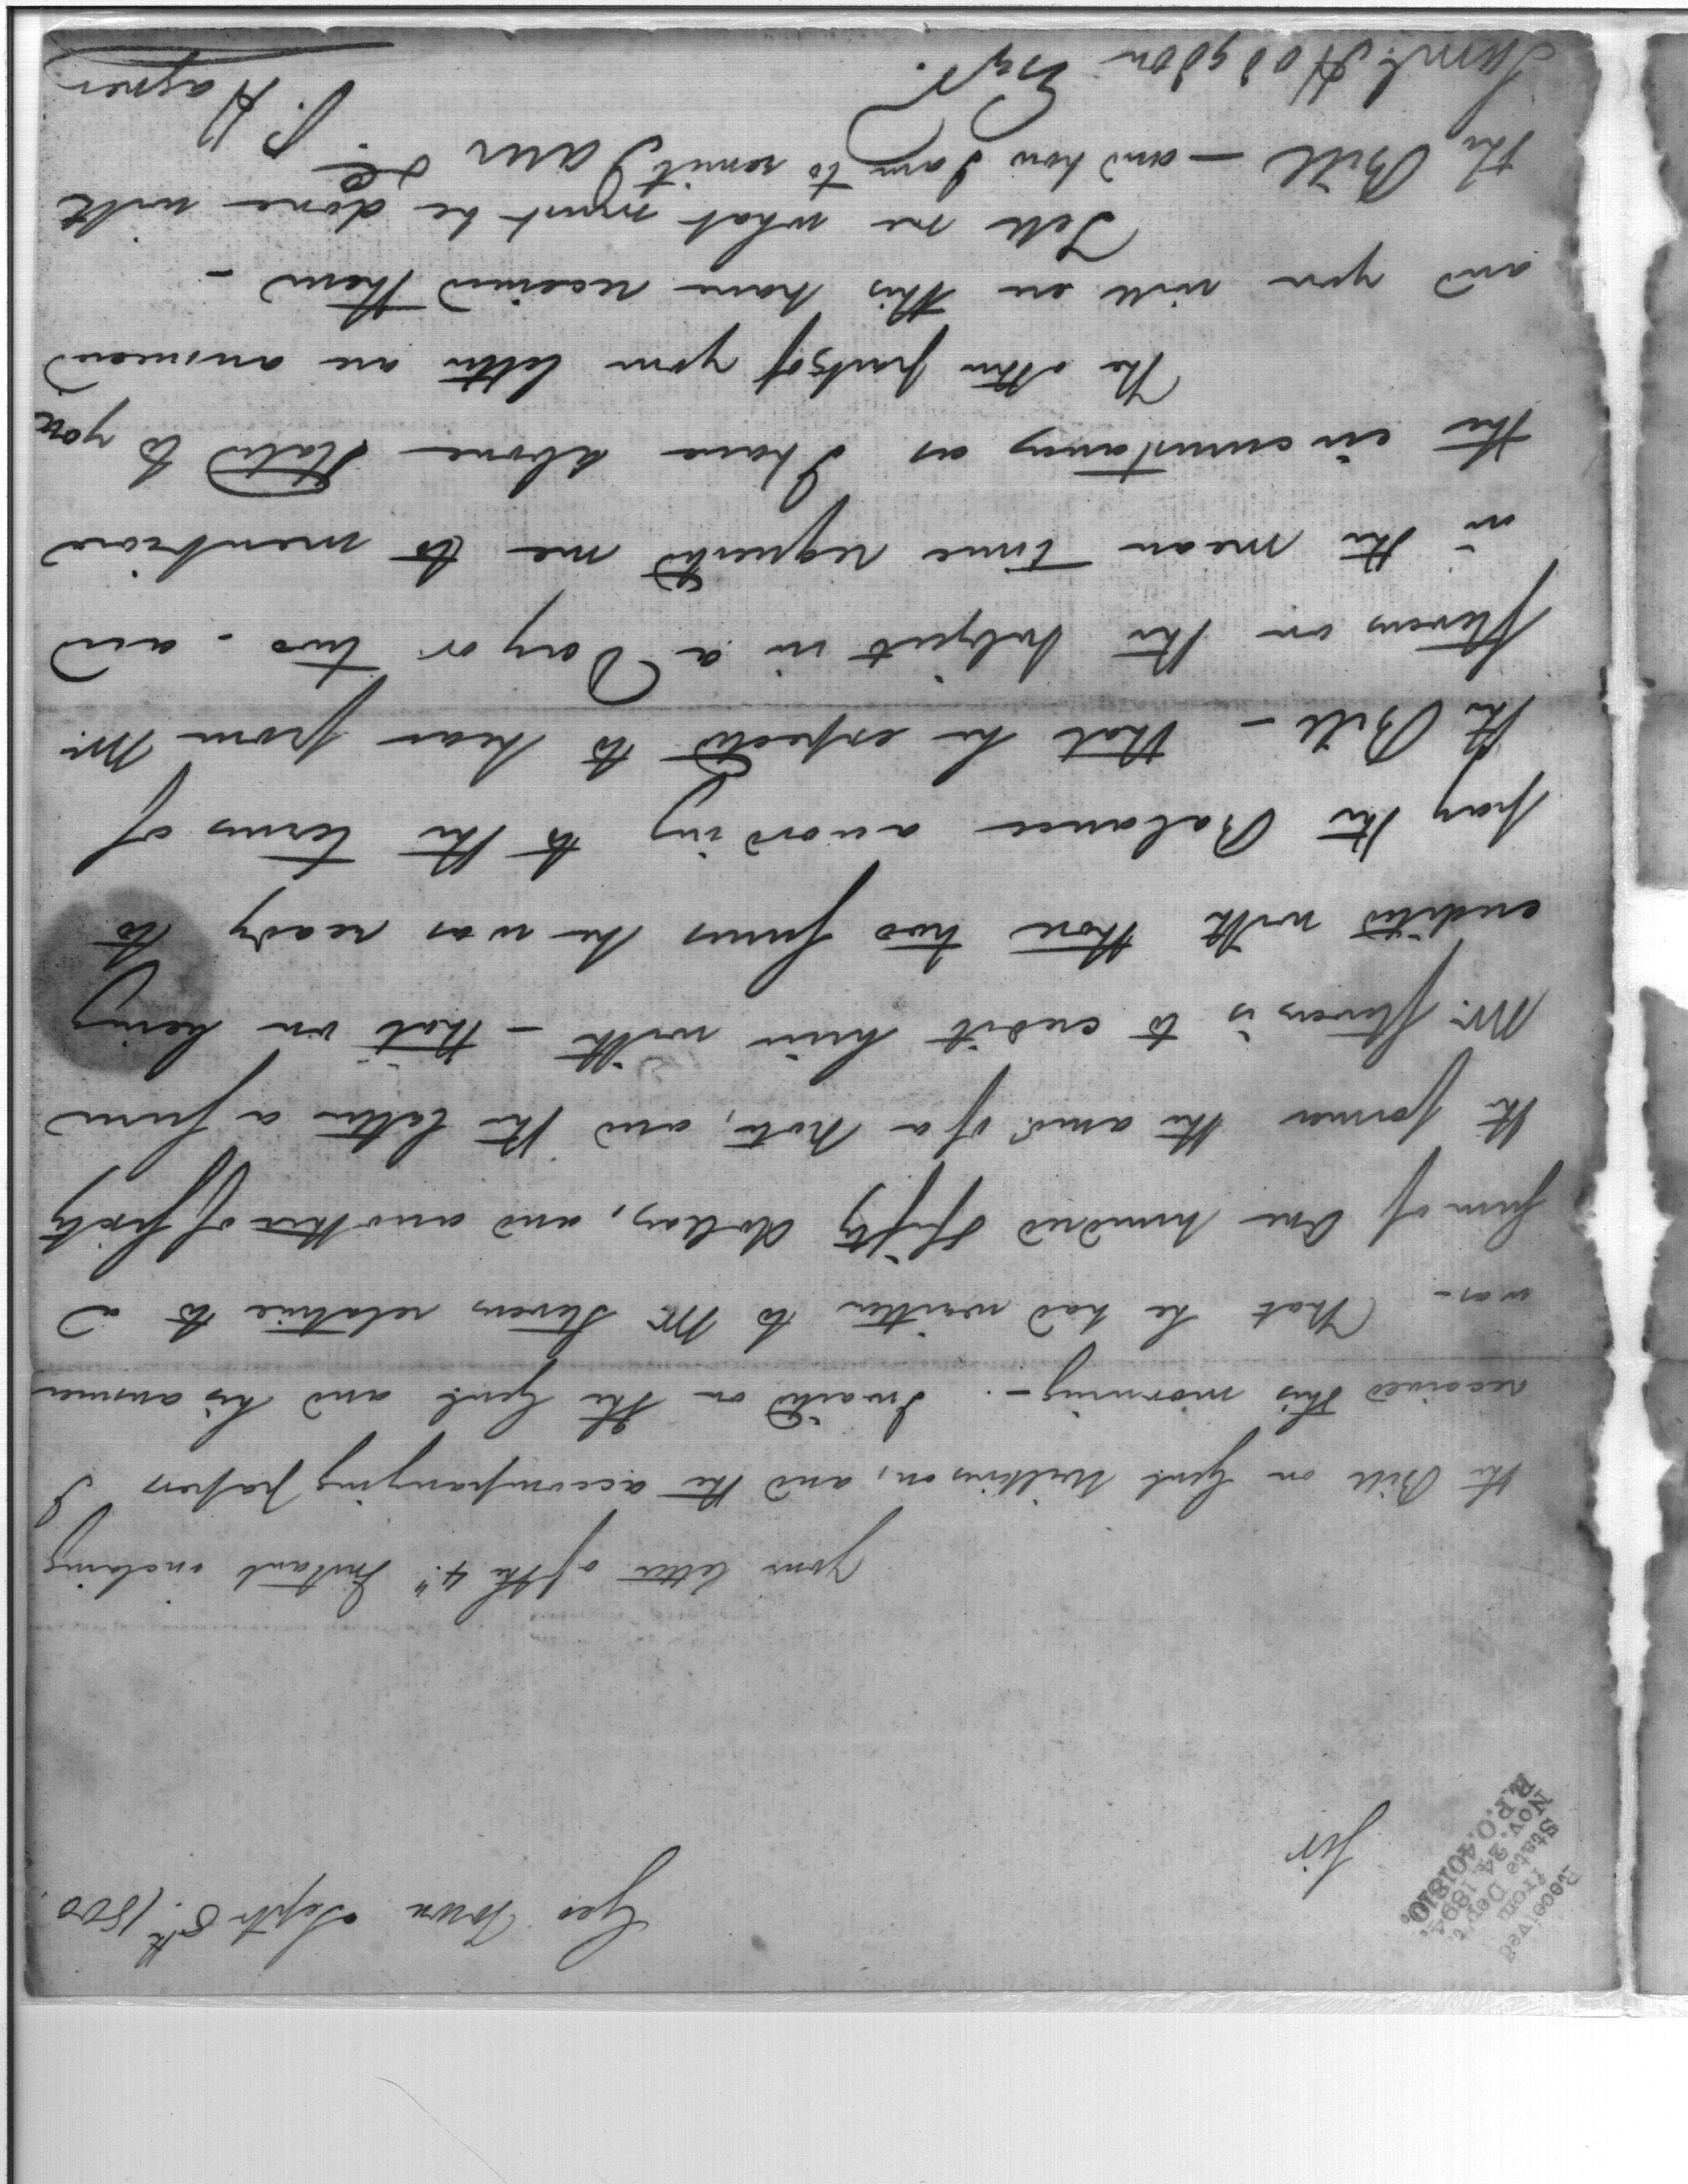 Received
from
State Dep't.
Nov. 24 1894.
R.P.O. 401810.
Geo Town Septr 8th. 1800
Sir
Your letter of the 4" Instant inclosing
the Bill on Genl Wilkinson, and the accompanying papers I
received this morning -. I waited on the Genl and his answer
was - That he had written to Mr Stevens relative to a
Sum of One hundred & fifty dollars, and another of sixty
the former the amt. of a Note, and the latter a sum
Mr. Stevens is to credit him with - that on being
credited with those two sums he was ready to
pay the Balance according to the terms of
the Bill - that he expected to hear from Mr.
Stevens on the Subject in a Day or two - and
in the mean time requested me to mention
the circumstances as I have above Stated to you
The other parts of your letter are answered
and you will ere this have received them -
Tell me what must be done with
the Bill - and how I am to remit I am &c
P. Hagner
Saml. Hodgdon Esqr.